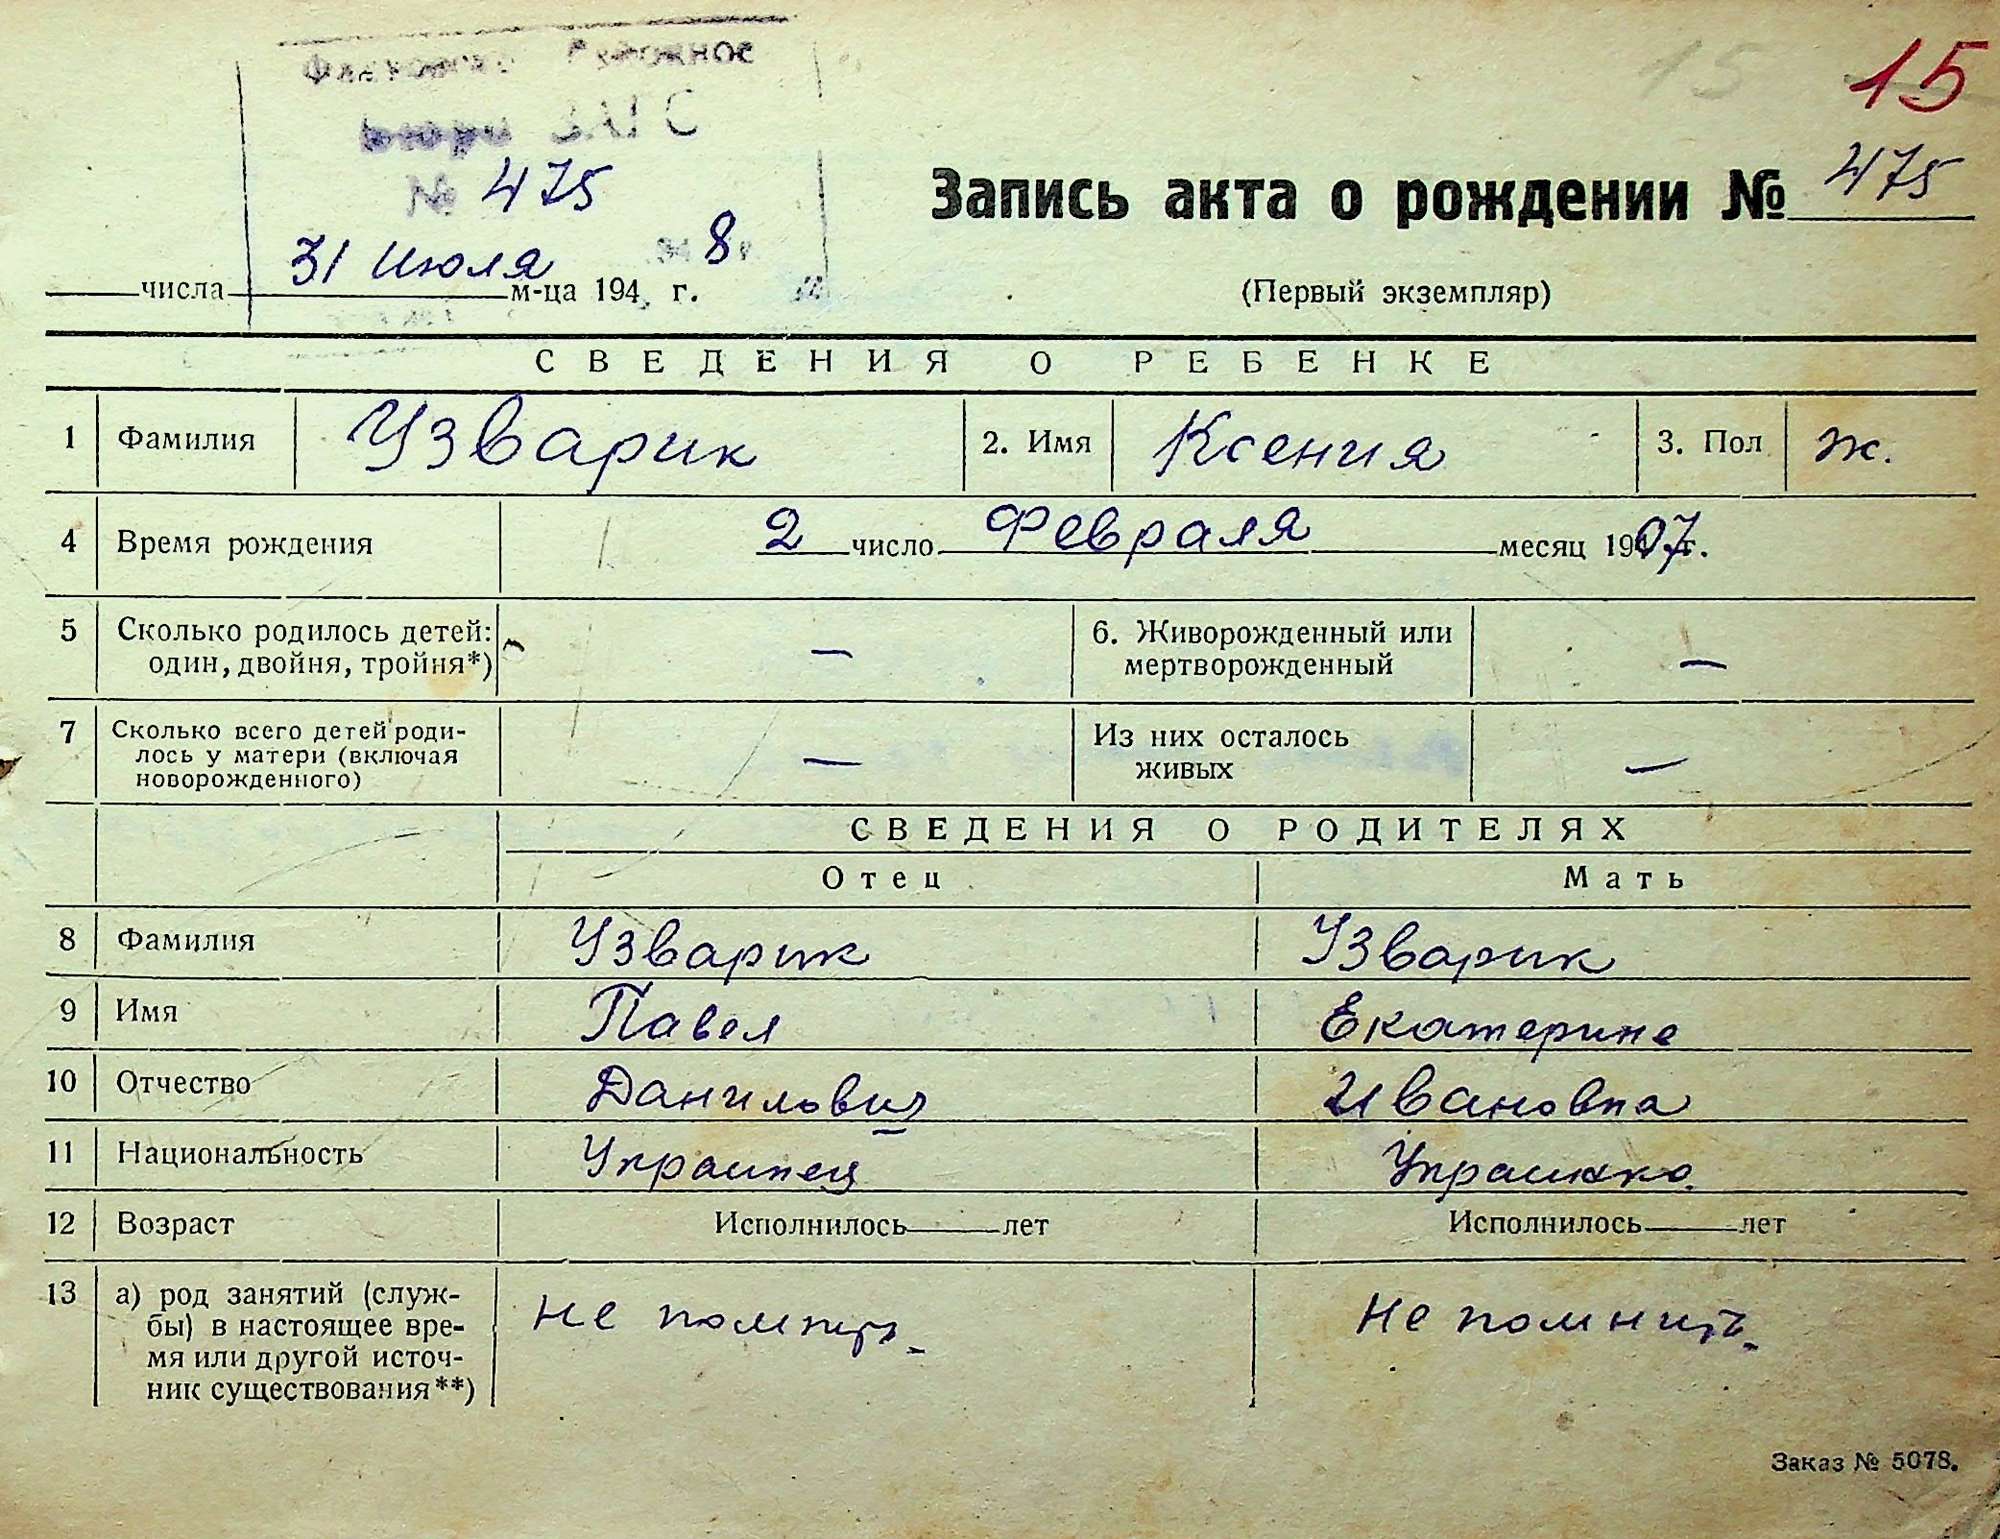 15 15
Районное
Бюро ЗАГС
№ 475
Запись акта о рождении № 475
31 Июля 8
числа м-ца 194 г.
(Первый экземпляр)
СВЕДЕНИЯ О РЕБЕНКЕ
1 Фамилия Узварик 2. Имя Ксения 3. Пол ж.
4 Время рождения 2 число Февраля месяц 1907 г.
5 Сколько родилось детей: один, двойня, тройня*) — 6. Живорожденный или мертворожденный —
7 Сколько всего детей родилось у матери (включая новорожденного) — Из них осталось живых —
СВЕДЕНИЯ О РОДИТЕЛЯХ
Отец Мать
8 Фамилия Узварик Узварик
9 Имя Павел Екатерине
10 Отчество Данилович Ивановна
11 Национальность Украинец Украинка
12 Возраст Исполнилось лет Исполнилось лет
13 а) род занятий (служ- не помнит не помнит
бы) в настоящее вре-
мя или другой источ-
ник существования**)
Заказ № 5078.